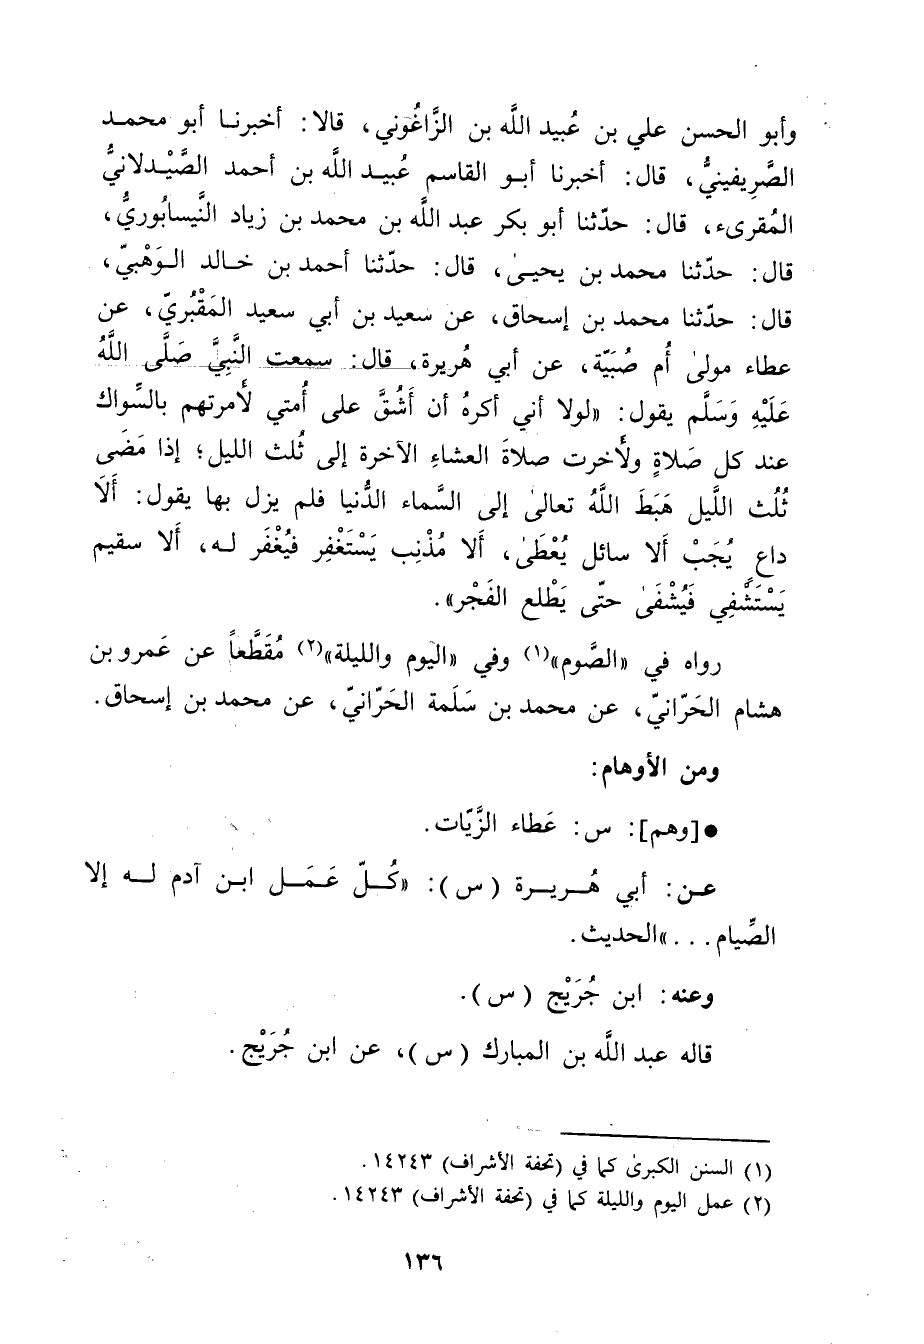 وأبو الحسن علي بن عُبيد اللَّه بن الزَّاغُوني، قالا: أخبرنا أبو محمد
الصَّرِيفينيُّ، قال: أخبرنا أبو القاسم عُبيد اللَّه بن أحمد الصَّيْدلانيُّ
المُقرىء، قال: حدّثنا أبو بكر عبد اللَّه بن محمد بن زياد النَّيسابُوريُّ،
قال: حدّثنا محمد بن يحيىٰ، قال: حدّثنا أحمد بن خالد الوَهْبيّ،
قال: حدّثنا محمد بن إسحاق، عن سعيد بن أبي سعيد المَقْبُريّ، عن
عطاء مولىٰ أُم صُبَيَّة، عن أبي هُريرة، قال: سمعت النَّبِيَّ صَلَّى اللَّهُ
عَلَيْهِ وَسَلَّم يقول: «لولا أني أكرهُ أن أَشُقَّ على أُمتي لأَمرتهم بالسِّواك
عند كل صَلاةٍ ولأَخرت صلاةَ العشاءِ الآخرة إلى ثُلث الليل؛ إذا مَضَى
ثُلُث اللَّيل هَبَطَ اللَّهُ تعالىٰ إلى السَّماء الدُّنيا فلم يزل بها يقول: أَلَا
داعٍ يُجَبْ ألا سائل يُعْطَىٰ، أَلا مُذْنِب يَسْتَغْفِر فيُغْفَر له، ألا سقيم
يَسْتَشْفِي فَيُشْفَىٰ حتّى يَطْلع الفَجْر».
رواه في «الصَّوم»(١) وفي «اليوم والليلة»(٢) مُقَطَّعاً عن عَمرو بن
هشام الحَرّانيّ، عن محمد بن سَلَمة الحَرّانيّ، عن محمد بن إسحاق.
ومن الأوهام:
● [وهم]: س: عَطاء الزَّيّات.
عن: أبي هُريرة (س): «كُلّ عَمَل ابن آدم له إلا
الصِّيام...»الحديث.
وعنه: ابن جُرَيْج (س).
قاله عبد اللَّه بن المبارك (س)، عن ابن جُرَيْج.
(١) السنن الكبرىٰ كما في (تحفة الأشراف) ١٤٢٤٣.
(٢) عمل اليوم والليلة كما في (تحفة الأشراف) ١٤٢٤٣.
١٣٦